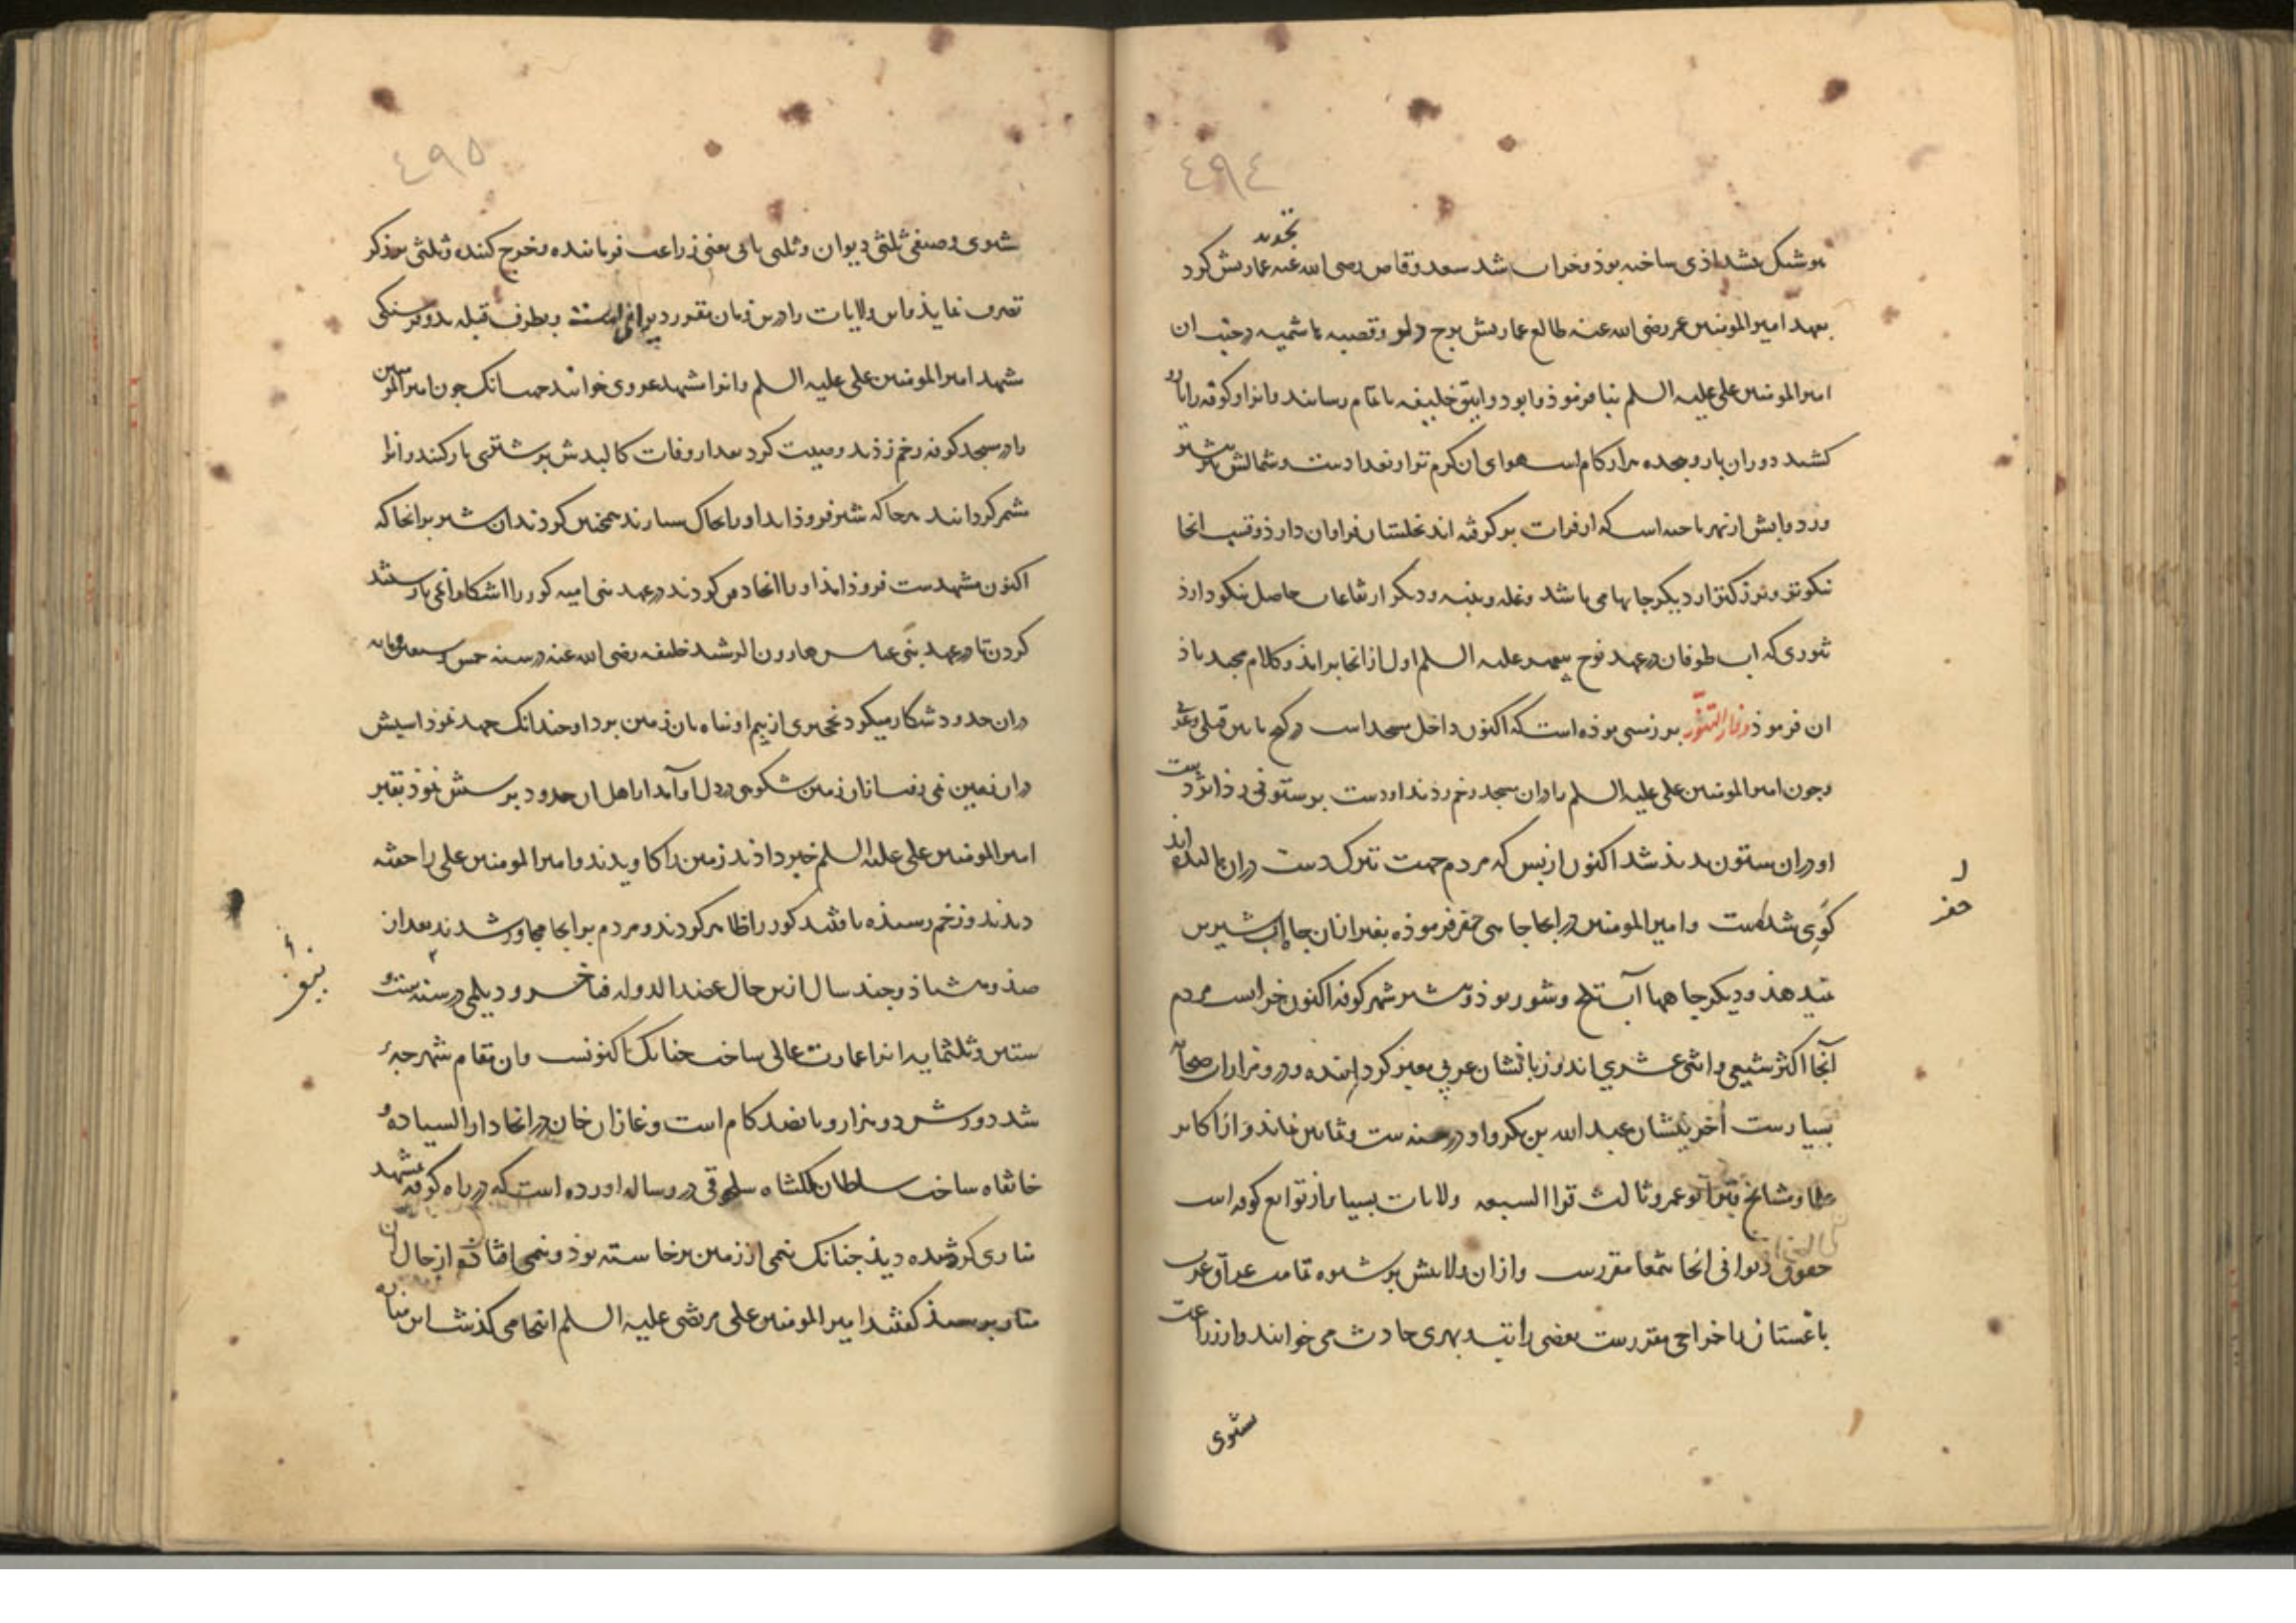 ٤٩٤
تجدید
هوشنک پشدادی ساخته بوذ و خراب شد سعد وقاص رضی الله عنه عمارتش کرد
بعهد امیرالمومنین عمر رضی الله عنه طالع عمارتش برج دلو و قصبه هاشمیه در جنب ان
امیرالمومنین علی علیه السلم بنا فرموذ و ابو دوانیق خلیفه باتمام رسانند و انرا و کوفه را بارو
کشید دوران بارو هجده هزار کام است هوای ان کرم تر از بغدادست و شمالش بیشتر
وزد و ابش از نهر ناحیه است که از فرات بر کرفته اند نخلستان فراوان دارذ و قسب انجا
نیکوتر و بزرکتر از دیکر جایها می باشد و غله و پنبه و دیکر ارتفاعات حاصل نیکو دارذ
تنوری که اب طوفان در عهد نوح پیغمبر علیه السلم اول از انجا برامذ و کلام مجید باذ
ان فرموذ وفار التنور بر زمینی بوذه است که اکنون داخل مسجد است در کنج مابین قبلی و غربی
و چون امیرالمومنین علی علیه السلم را دران مسجد زخم زدند او دست بر ستونی زذ اثر دست
او دران ستون بدید شد اکنون از بس که مردم جهت تبرک دست دران مالیده اند
کوی شدست و امیرالمومنین در انجا جاهی حفر فرموذه بغیر از ان جاه اب شیرین
نمیدهذ و دیکر جاهها آب تلخ و شور بوذ و بیشتر شهر کوفه اکنون خرابست مردم
آنجا اکثر شیعی و اثنی عشری اند و زبانشان عربی مغیر کردانیده و درو مزارات صحابه
بسیارست اخرینشان عبد الله بن بکر و او در سنه ست و ثمانین نماند و از اکابر
علما و مشایخ قبر ابو عمرو ثالث قراء السبعه ولایات بسیار از توابع کوفه است
حقوق دیوانی انجا بتمغا مقررست و از ان ولایتش بر شیوه تمامت عراق عرب
باغستان با خراجی مقررست بعضی را تبه و بهری حادث می خوانند و از زراعت
شتوی
ر
حفر
٤٩٥
شتوی و صیفی ثلثی دیوان و ثلثی باقی یعنی زراعت فرماینده و خرج کننده و ثلثی برزکر
تصرف نمایذ و این ولایات را درین زمان مقرر دیوانی است و بطرف قبله بدو فرسنکی
مشهد امیرالمومنین علی علیه السلم و انرا مشهد غروی خوانند جهت انک جون امیرالمومنین
را در مسجد کوفه زخم زذند وصیت کرد بعد از وفات کالبدش بر شتری بار کنند و انرا
شمر کردانند هرجا که شتر فروذ اید او را بخاک سپارند همچنین کردند ان شتر بر انجا که
اکنون مشهدست فروذ امذ او را انجا دفن کردند در عهد بنی امیه کور را اشکارا نمی یارستند
کردن تا در عهد بنی عباس هارون الرشید خلیفه رضی الله عنه در سنه خمس و سبعین و مایه
دران حدود شکار میکرد نخجیری از بیم او پناه بان زمین برد او چندانک جهد نموذ اسبش
دران زمین نمی رفت از ان زمین شکوهی در دل او آمد از اهل ان حدود پرسش نموذ بقبر
امیرالمومنین علی علیه السلم خبر داذند زمین را کاویدند و امیرالمومنین علی را خفته
دیدند و زخم رسیده یافتند کور را ظاهر کردند و مردم بر انجا مجاور شدند بعد از
صذ و هشتاذ و جند سال ازین حال عضد الدوله فناخسرو دیلمی در سنه ست و
ستین و ثلثمایه انرا عمارت عالی ساخت جنانک تا کنونست و ان مقام شهرجه
شد دورش دو هزار و بانصد کام است و غازان خان در انجا دارالسیاده و
خانقاه ساخت سلطان ملکشاه سلجوقی در رساله اورده است که در راه کوفه بمشهد
مناری کژ شده دیذ جنانک نیمی از زمین برخاسته بوذ و نیمی افتاذه از حال ان
منار برسیذ کفتند امیرالمومنین علی مرتضی علیه السلم انجا می کذشت این مناره